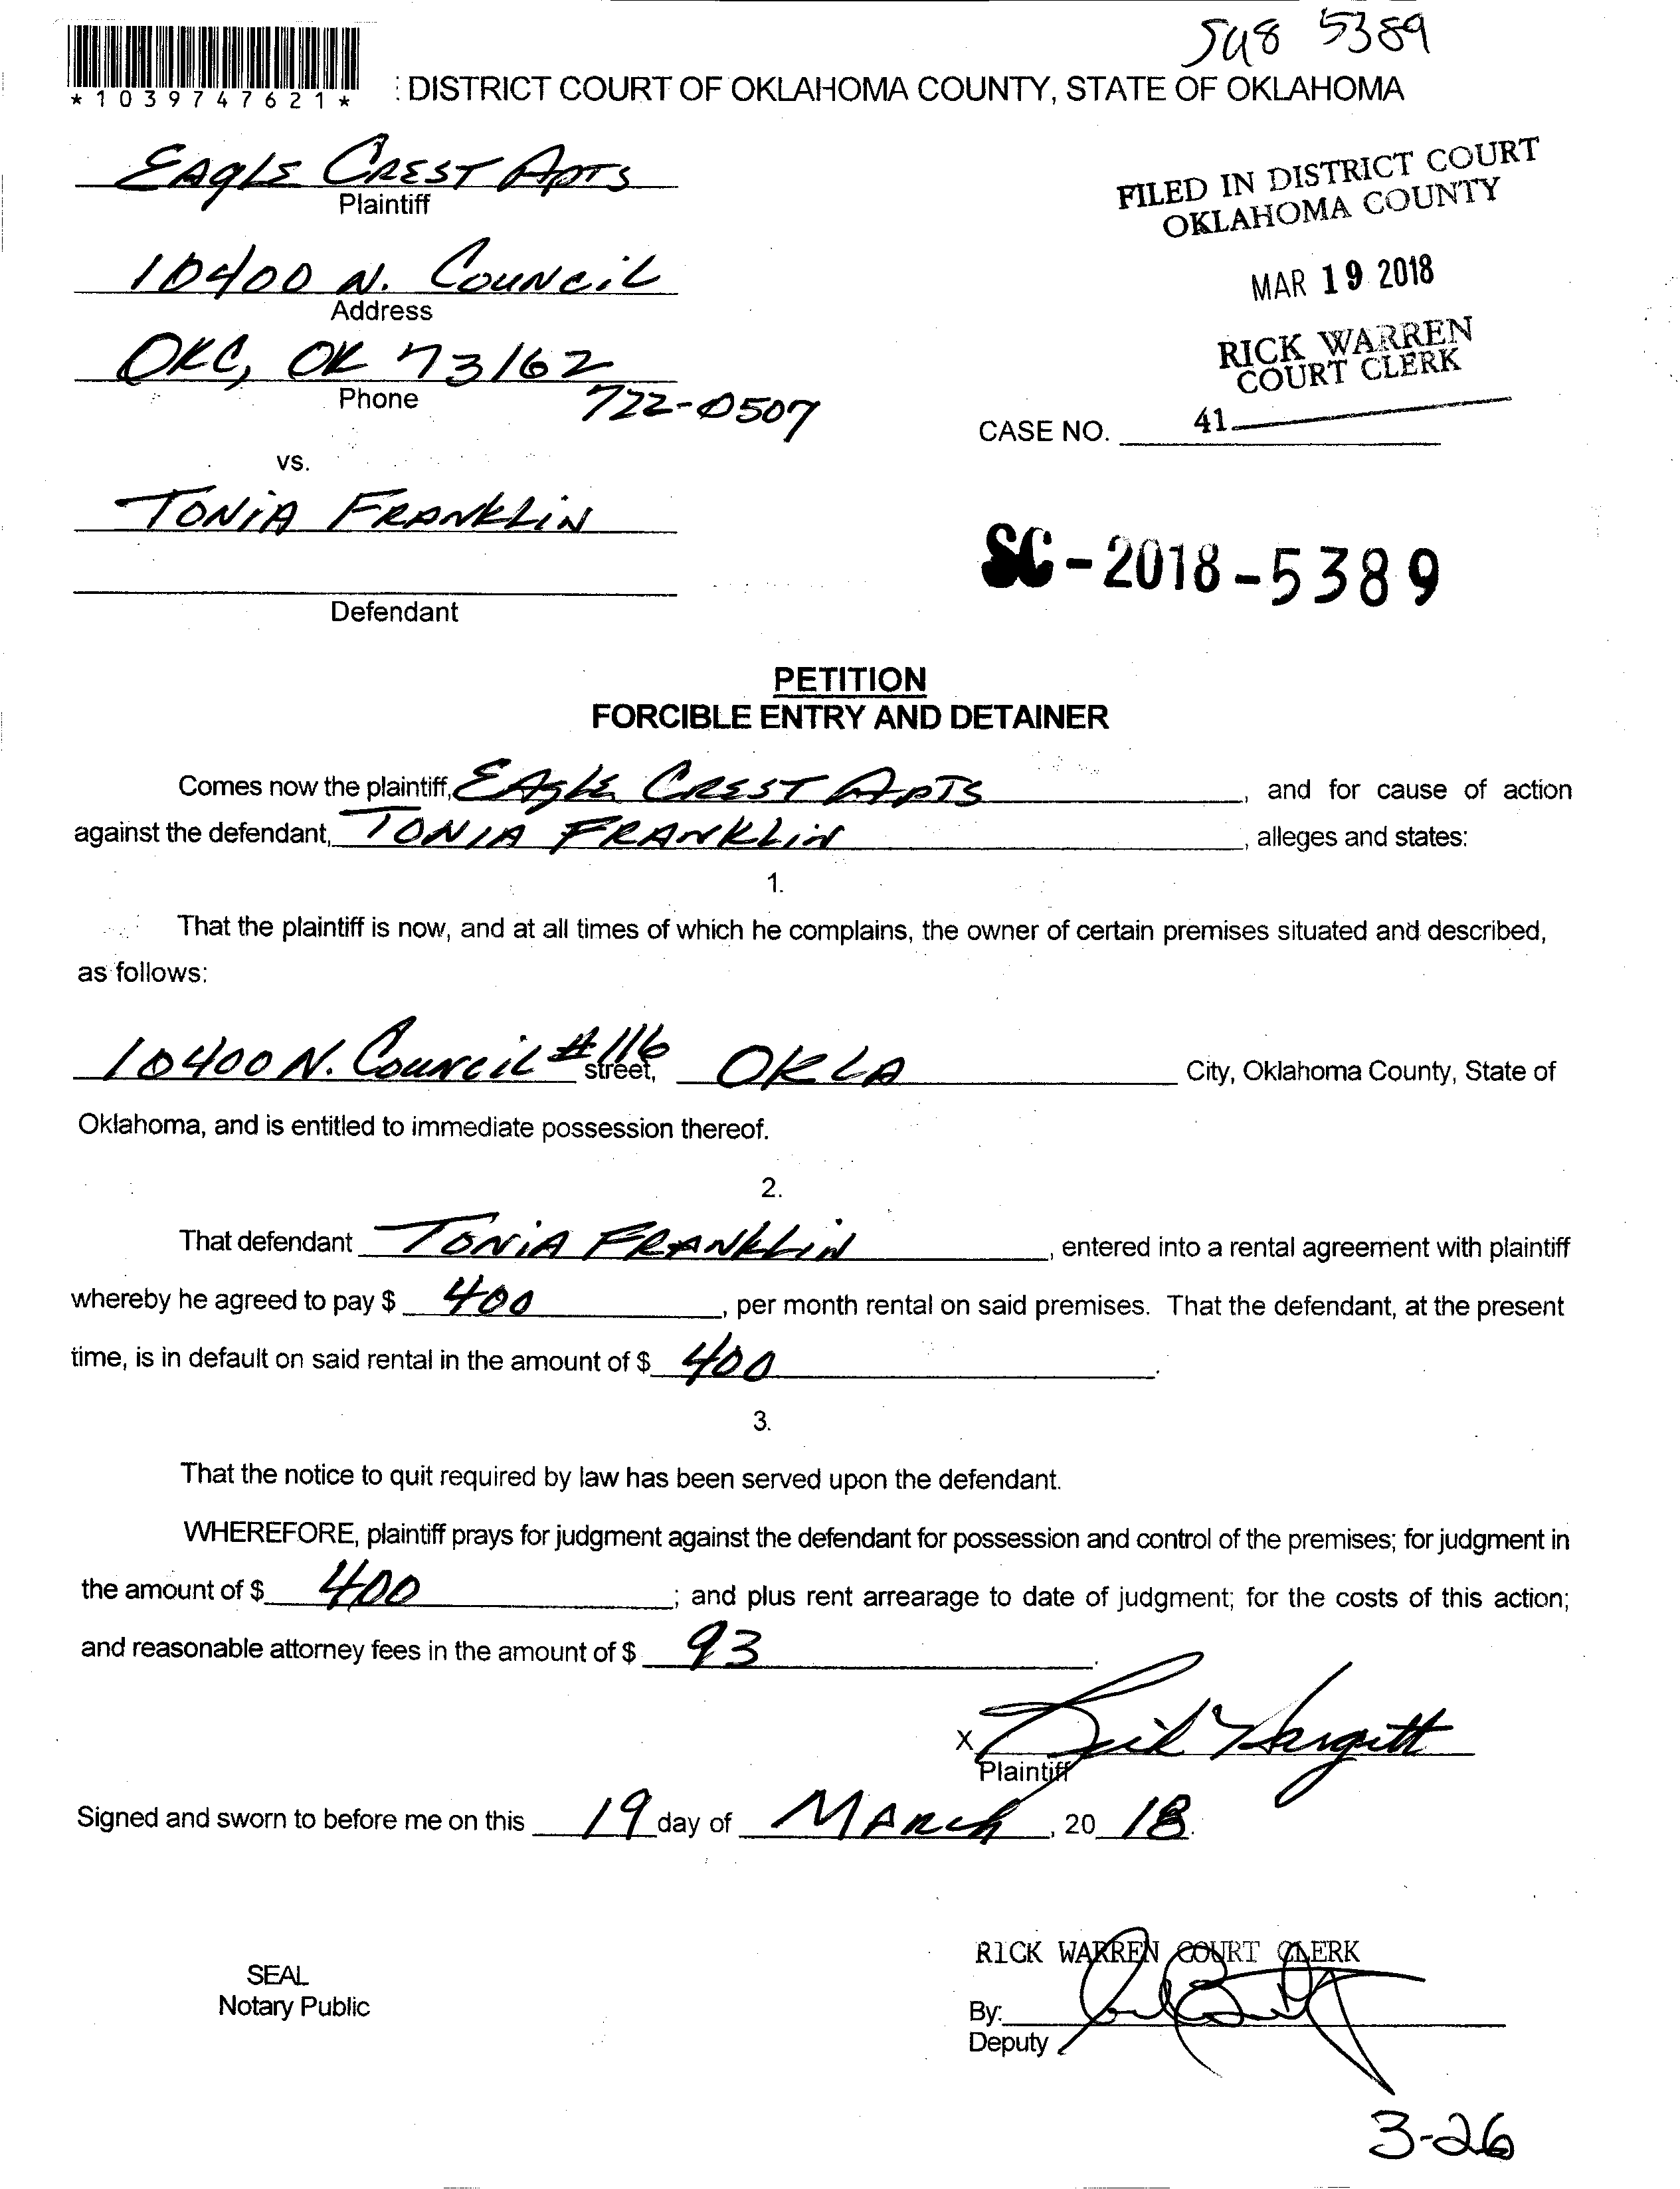 5389
*1039747621*
: DISTRICT COURT OF OKLAHOMA COUNTY, STATE OF OKLAHOMA
EAGLE CREST APTS
Plaintiff
FILED IN DISTRICT COURT
OKLAHOMA COUNTY
10400 N. COUNCIL
Address
MAR 19 2018
OKC, OK 73162
Phone
722-0507
RICK WARREN
COURT CLERK
41
CASE NO.
vs.
TONIA FRANKLIN
Defendant
SC-2018-5389
PETITION
FORCIBLE ENTRY AND DETAINER
Comes now the plaintiff, EAGLE CREST APTS, and for cause of action
against the defendant, TONIA FRANKLIN, alleges and states:
1.
That the plaintiff is now, and at all times of which he complains, the owner of certain premises situated and described,
as follows:
10400 N. COUNCIL #116 street, OKLA City, Oklahoma County, State of
Oklahoma, and is entitled to immediate possession thereof.
2.
That defendant TONIA FRANKLIN, entered into a rental agreement with plaintiff
whereby he agreed to pay $ 400, per month rental on said premises. That the defendant, at the present
time, is in default on said rental in the amount of $ 400.
3.
That the notice to quit required by law has been served upon the defendant.
WHEREFORE, plaintiff prays for judgment against the defendant for possession and control of the premises; for judgment in
the amount of $ 400; and plus rent arrearage to date of judgment; for the costs of this action;
and reasonable attorney fees in the amount of $ 93.
X Hargitt
Plaintiff
Signed and sworn to before me on this 19 day of MARCH, 20 18.
RICK WARREN COURT CLERK
SEAL
Notary Public
By:
Deputy
3-26